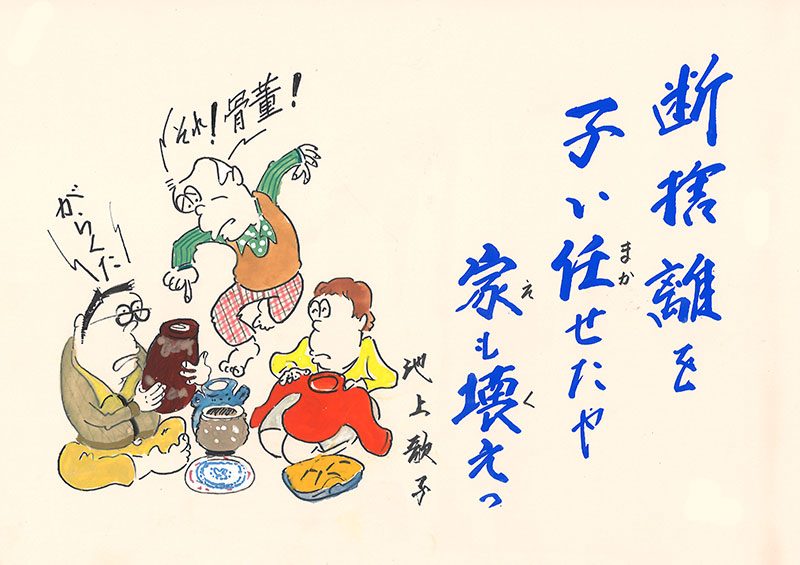 断捨離を
子い任せたや
まか
家も壊えっ
え
く
それ！骨董！
がらくた
池上歌子